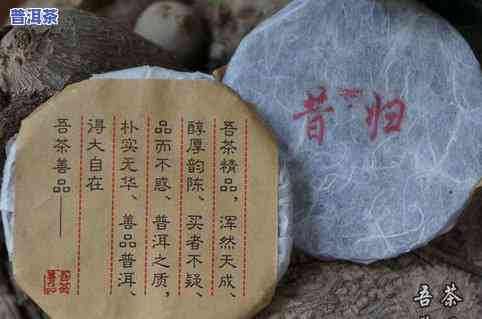 普洱茶
吾茶精品，浑然天成、
醇厚韵陈、买者不疑、
品而不惑、普洱之质，
朴实无华、善品普洱、
得大自在
吾茶善品——
昔归
吾茶